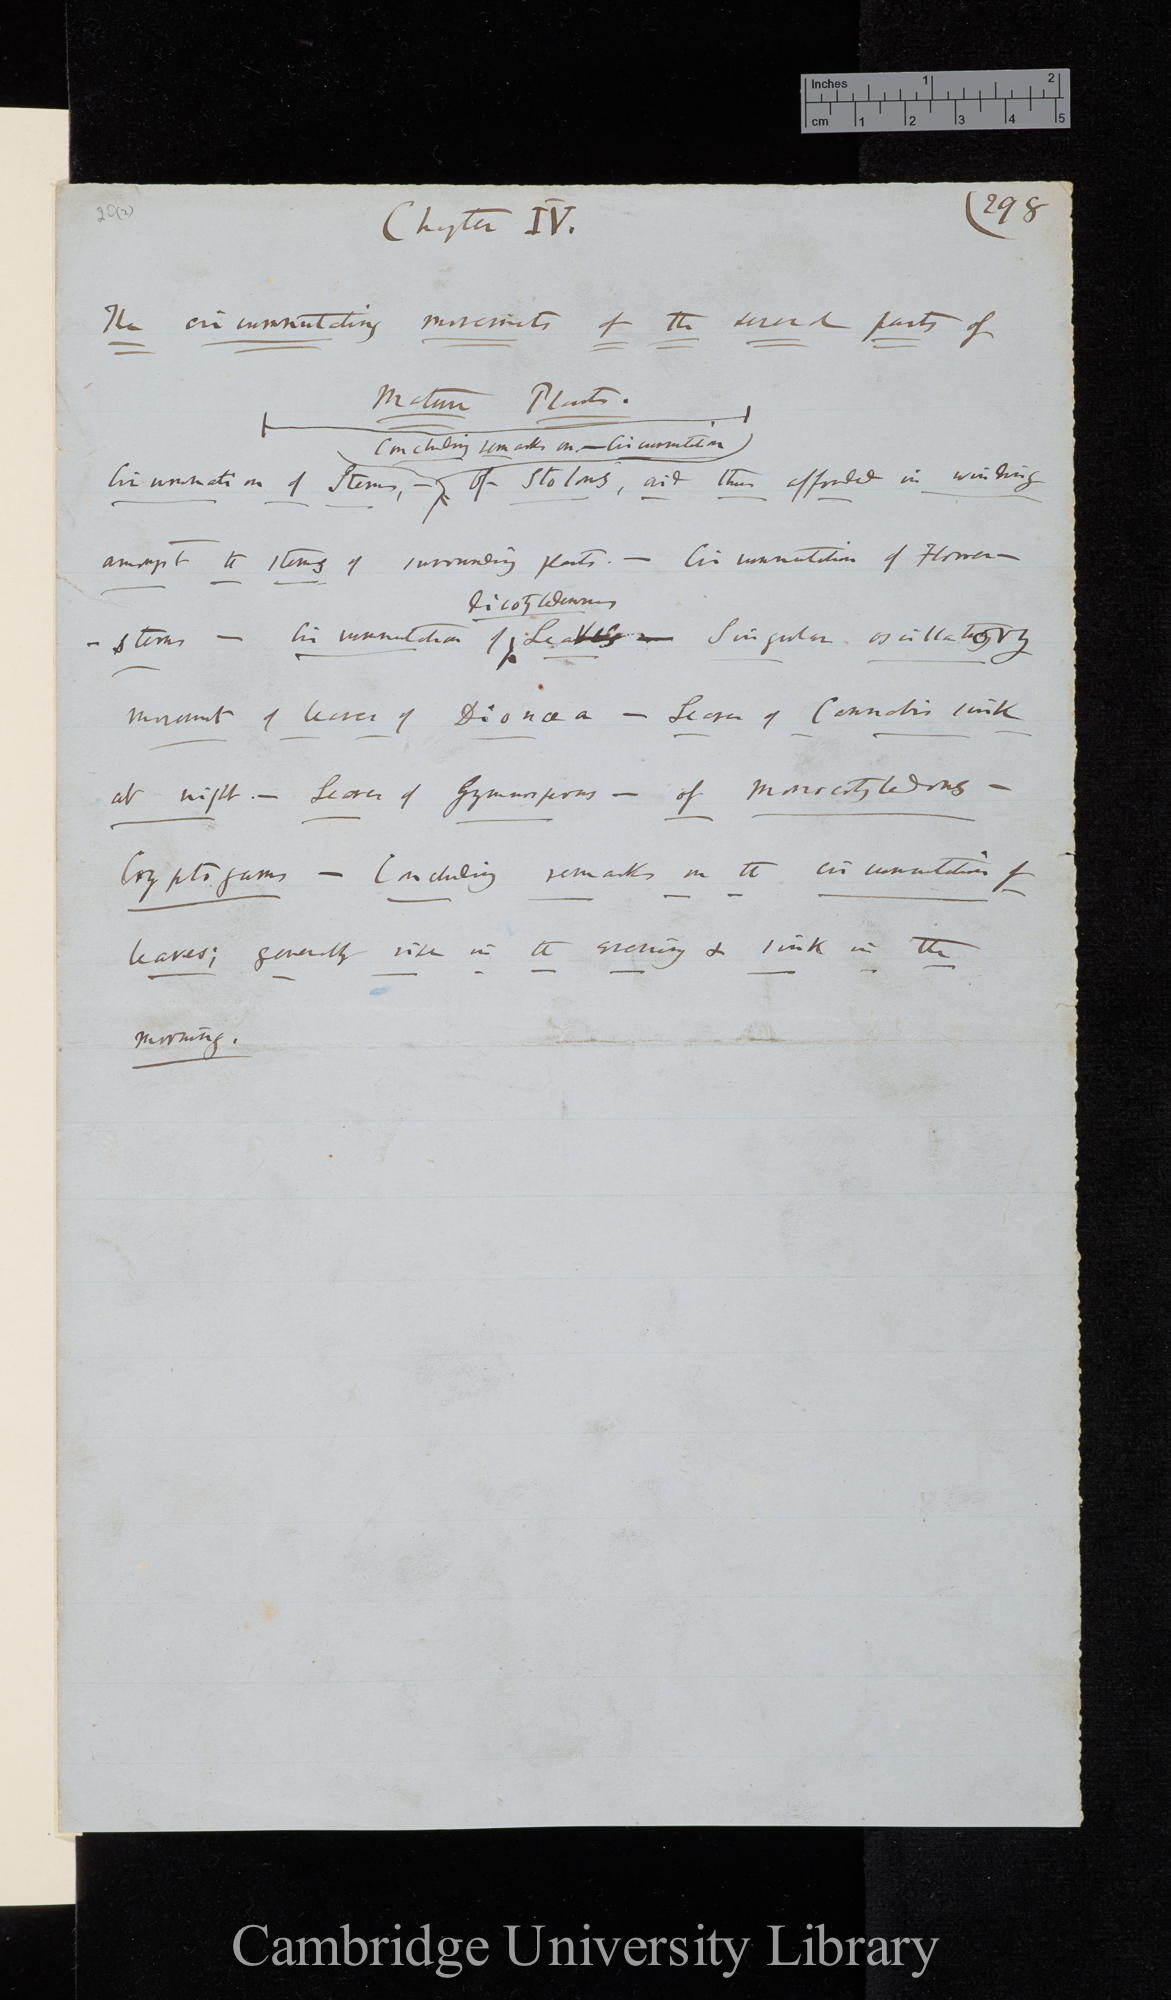 Inches 1 2
cm 1 2 3 4 5
20(2)
Chapter IV.
(298
The circumnutating movements of the several parts of
Mature Plants.
Concluding remarks on – Circumnutation
Circumnutation of Stems, – of Stolons, aid thus afforded in winding
amongst the stems of surrounding plants. – Circumnutation of Flower –
Dicotyledonous
– stems – Circumnutation of Leaves – Singular oscillatory
movement of leaves of Dionaea – Leaves of Cannabis sink
at night. – Leaves of Gymnosperms – of Monocotyledons –
Cryptogams – Concluding remarks on the circumnutation of
leaves; generally rise in the evening & sink in the
morning.
Cambridge University Library